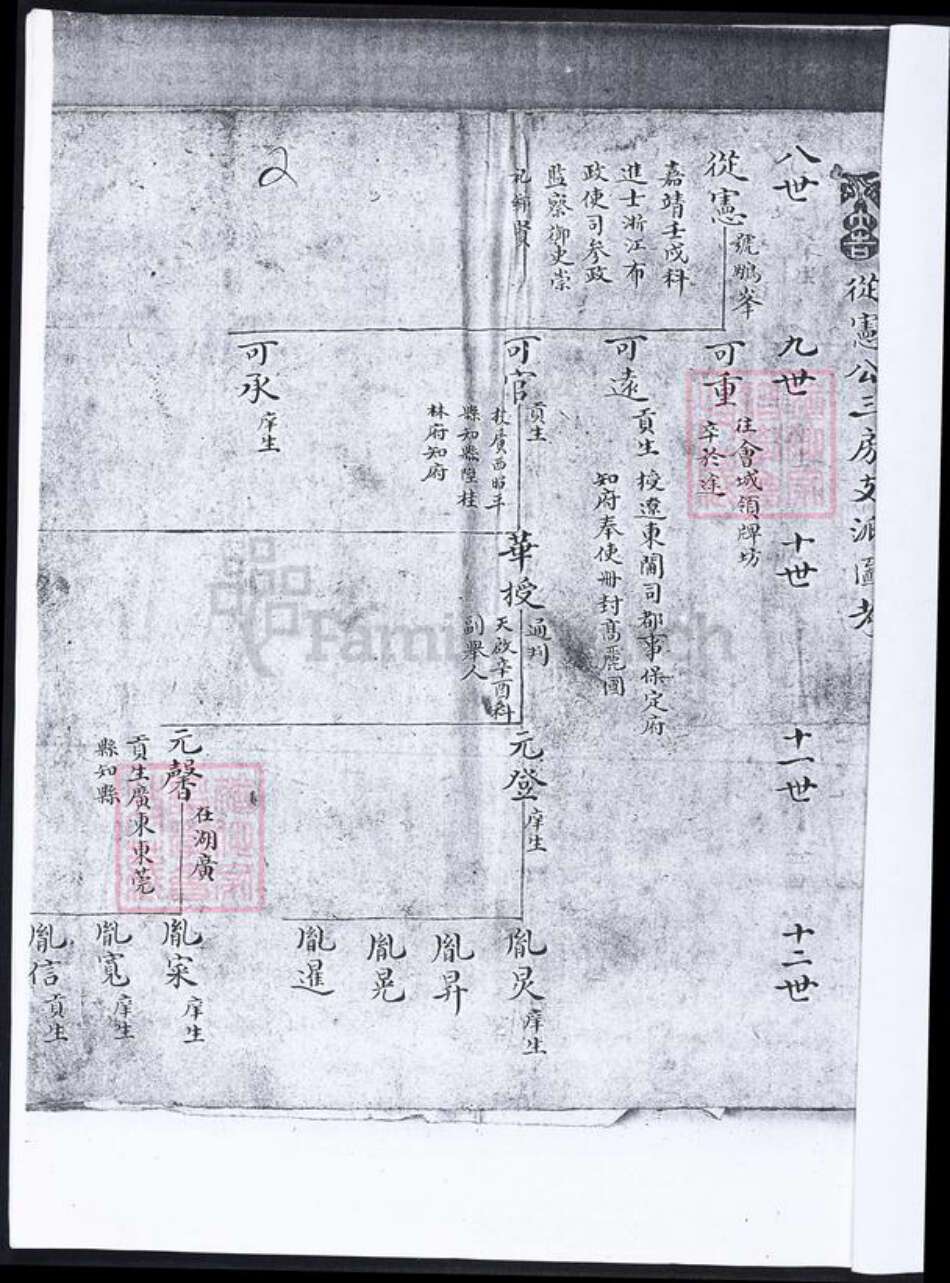 從憲公三房支派圖考
八世
從憲
號鵬峯
嘉靖壬戌科
進士浙江布
政使司參政
監察御史崇
祀鄉賢
2
九世
可重
往會城領牌坊
卒於途
可遠
貢生
授遼東閫司都事保定府
知府奉使冊封高麗國
可官
貢生
授廣西昭平
縣知縣陞桂
林府知府
可承
庠生
十世
華授
通判
天啟辛酉科
副舉人
十一世
元登
庠生
元馨
在湖廣
貢生廣東東莞
縣知縣
十二世
胤炅
庠生
胤昇
胤晃
胤暹
胤寀
庠生
胤寬
庠生
胤信
貢生
FamilySearch